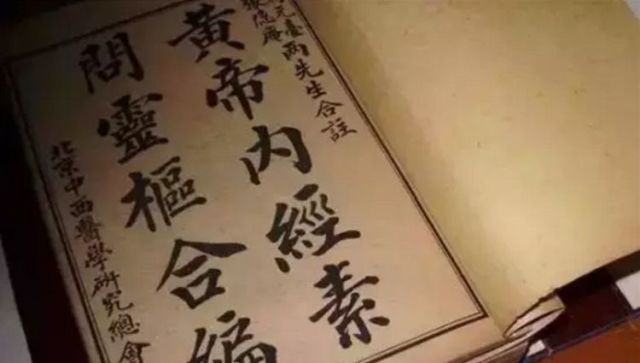 張隱庵
元臺兩先生合註
黃帝內經素
問靈樞合編
北京中西醫學研究總會